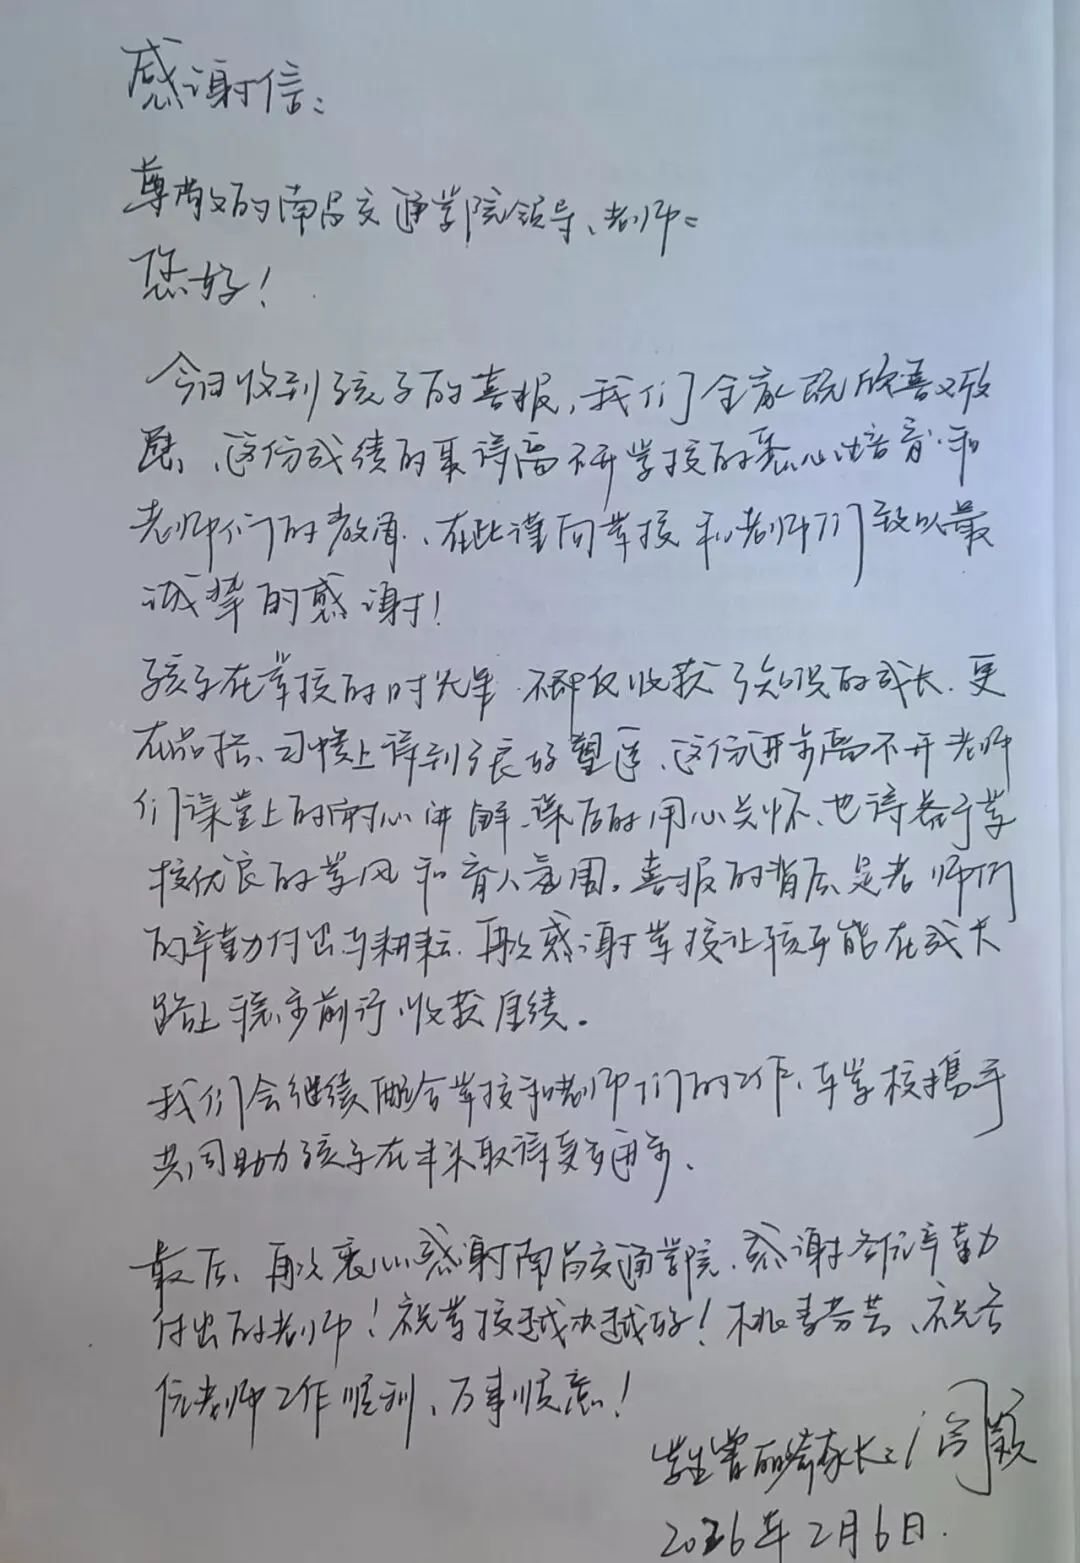 感谢信：
尊敬的南昌交通学院领导、老师：
您好！
今日收到孩子的喜报，我们全家既欣喜又欣
慰、这份成绩的取得离不开学校的悉心培育和
老师们的教育、在此谨向学校和老师们致以最
诚挚的感谢！
孩子在学校的时光里 不仅收获了知识的成长、更
在品格、习惯上得到了良好塑造、这份进步离不开老师
们课堂上的耐心讲解、课后的用心关怀、也得益于学
校优良的学风和育人氛围。喜报的背后是老师们
的辛勤付出与耕耘、再次感谢学校让孩子能在成长
路上稳步前行收获佳绩。
我们会继续配合学校和老师们的工作、与学校携手
共同助力孩子在未来取得更多进步、
最后、再次衷心感谢南昌交通学院、感谢各位辛勤
付出的老师！祝学校越办越好！桃李芬芳、祝各
位老师工作顺利、万事顺意！
学生曾丽琦家长：
2026年2月6日.